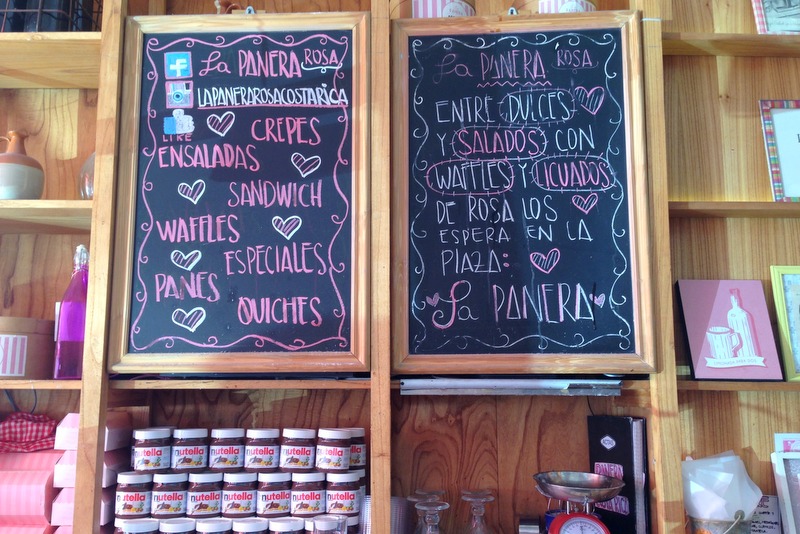 La PANERA ROSA
LAPANERAROSACOSTARICA
LIKE
CREPES
ENSALADAS
SANDWICH
WAFFLES
ESPECIALES
PANES
QUICHES
La PANERA ROSA
ENTRE DULCES
Y SALADOS CON
WAFFLES Y LICUADOS
DE ROSA LOS
ESPERA EN LA
PLAZA:
La PANERA
nutella nutella nutella nutella nutella nutella
nutella nutella nutella nutella nutella nutella nutella